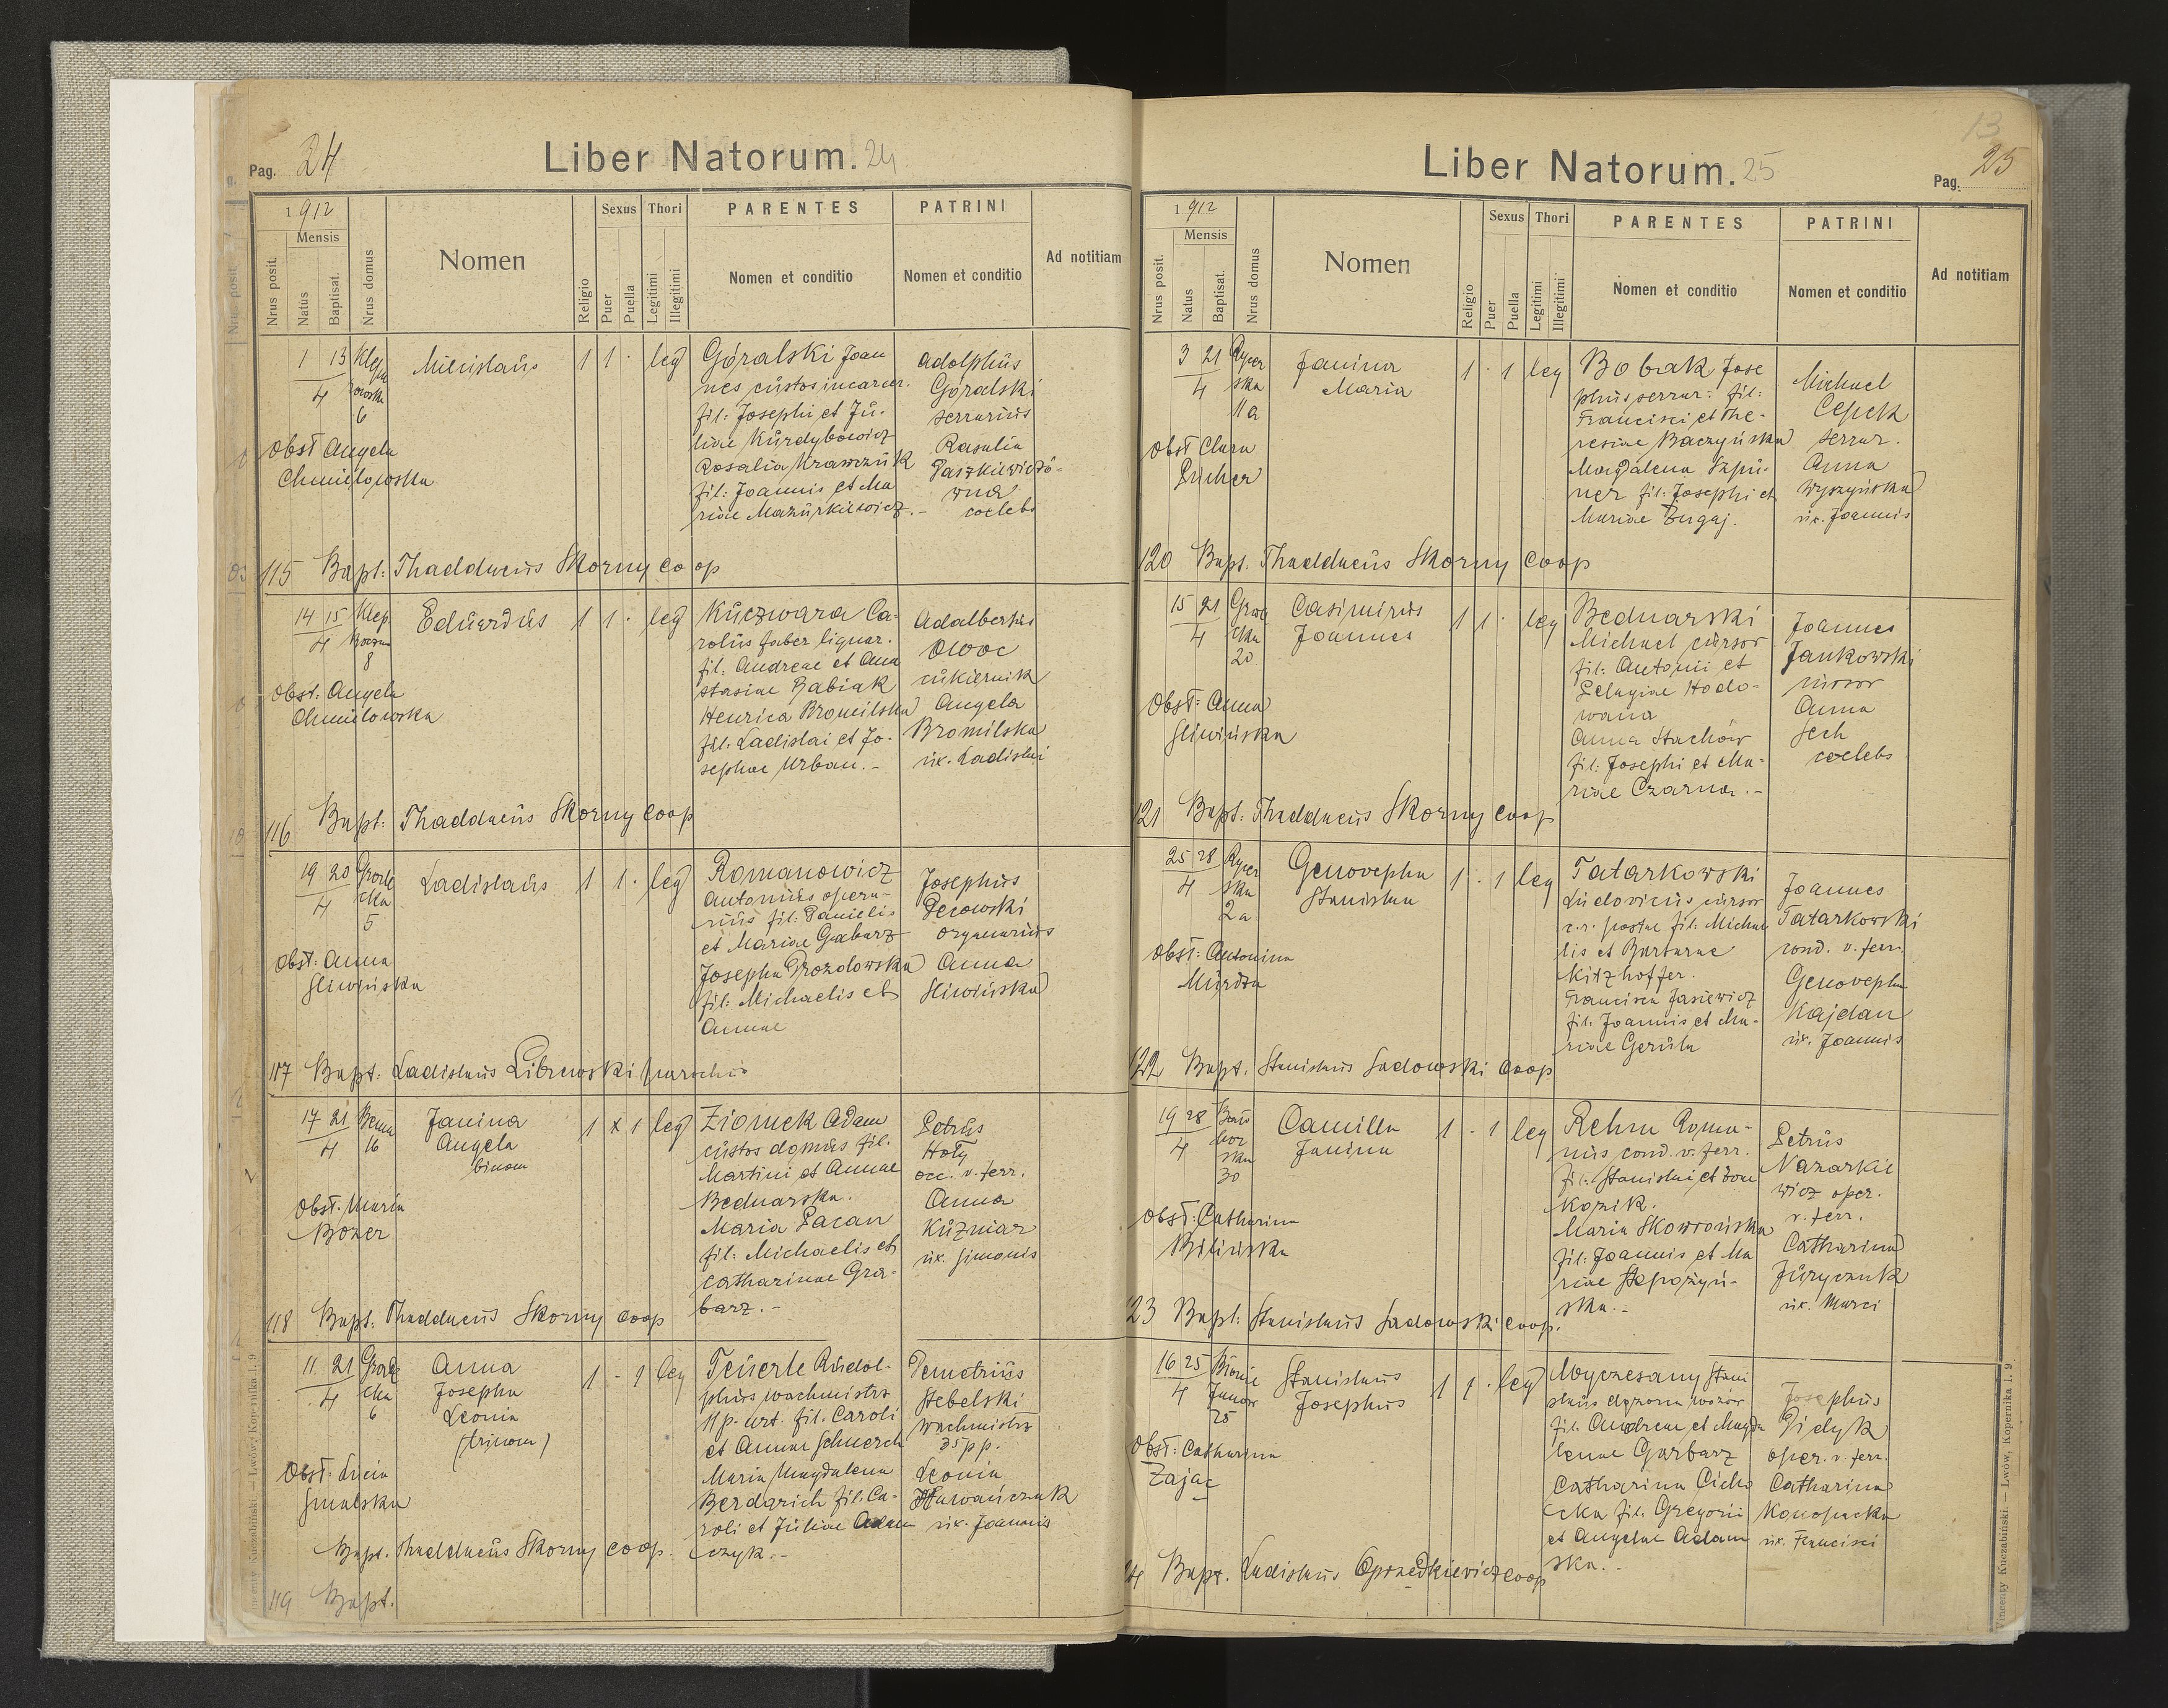 Pag. 24
Liber Natorum. 24
1912
Mensis
Nrus posit.
Natus
Baptisat.
Nrus domus
Nomen
Religio
Sexus
Puer
Puella
Thori
Legitimi
Illegitimi
PARENTES
Nomen et conditio
PATRINI
Nomen et conditio
Ad notitiam
1 13
4
6
1 1 · leg
Góralski Joan
nes custos incarcer.
fil: Josephi et Ju-
liae Kurdybowicz
Rosalia Krawczuk
fil: Joannis et Ma
riae Mazurkiewicz.-
Adolphus
Góralski
serrarius
Rosalia
Paszkiewiczó-
wna
coelebs
Obst Angela
Chmielowska
115 Bapt: Thaddaeus Skorny coop
14 15 Klep
4
8
Eduardus
1 1 · leg
Kuczwara Ca-
rolus faber lignar.
fil. Andreae et Ana
stasiae Babiak
Henrica Bromilska
fil. Ladislai et Jo-
sephae Urban.-
Adalbertus
Owoc
cukiernik
Angela
Bromilska
ux. Ladislai
Obst: Angela
Chmielowska
116 Bapt: Thaddaeus Skorny coop
19 20 Grode
4 cka
5
Ladislaus
1 1 · leg
Romanowicz
Antonius opera-
rius fil: Danielis
et Mariae Gabarz
Josepha Drozdowska
fil: Michaelis et
Annae
Josephus
Pecowski
organarius
Anna
Sliwińska
Obst: Anna
Sliwińska
117 Bapt. Ladislaus Librewski parochus
17 21 Bema
4 16
Janina
Angela
binom
1 x 1 leg
Ziomek Adam
custos domus fil.
Martini et Annae
Bednarska.
Maria Pacan
fil: Michaelis et
Catharinae Gra-
barz.-
Petrus
Hoły
occ. v. ferr.
Anna
Kuzniar
ux. Simonis
Obst. Maria
Bozer
118 Bapt. Thaddaeus Skorny coop
11 21 Grode
4 cka
6
Anna
Josepha
Leonia
(trinom)
1 - 1 leg
Teuerle Rudol-
phus wachmistrz
11 p. art. fil. Caroli
et Annae Schnerch
Maria Magdalena
Berdarich fil. Ca-
roli et Juliae Adam
czyk.-
Demetrius
Stebelski
wachmistrz
35 pp.
Leonia
Huwańczuk
ux. Joannis
Obst: Lucia
Smalska
Bapt. Thaddaeus Skorny coop.
119 Bapt.
Liber Natorum. 25
13
Pag. 25
1912
Mensis
Nrus posit.
Natus
Baptisat.
Nrus domus
Nomen
Religio
Sexus
Puer
Puella
Thori
Legitimi
Illegitimi
PARENTES
Nomen et conditio
PATRINI
Nomen et conditio
Ad notitiam
3 21 Rycer
4 ska
11a
Janina
Maria
1 · 1 leg
Bobak Jose
phus serrar: fil:
Francisci et The-
resiae Baczyńska
Magdalena Szpu-
ner fil: Josephi et
Mariae Zugaj.
Michael
Cepek
serrar.
Anna
Wyszyńska
ux. Joannis
Obst Clara
Pricher
120 Bapt. Thaddaeus Skorny coop
15 21 Grode
4 cka
20
Casimirus
Joannes
1 1 · leg
Bednarski
Michael cursor
fil: Antonii et
Pelagiae Hodo-
wana
Anna Stachów
fil: Josephi et Ma-
riae Czarna.-
Joannes
Jankowski
cursor
Anna
Sech
coelebs
Obst: Anna
Sliwińska
121 Bapt. Thaddaeus Skorny coop
25 28 Rycer
4 ska
2a
Genovepha
Stanislaa
1 · 1 leg
Tatarkowski
Ludovicus cursor
c.r. postae fil. Michae
lis et Barbarae
Kitzhoffer.
Francisca Jasiewicz
fil. Joannis et Ma-
riae Gerula
Joannes
Tatarkowski
cond. v. ferr.
Genovepha
Kajdan
ux. Joannis
Obst: Antonina
Murdza
122 Bapt. Stanislaus Sadowski coop
19 28
4 ska
30
Camilla
Janina
1 - 1 leg
Rehm Roma-
nus cond. v. ferr.
fil. Stanislai et
Kozik.
Maria Skowrońska
fil: Joannis et Ma
riae
ska.-
Petrus
Nazarkie
wicz oper.
v. ferr.
Catharina
Juryczuk
ux. Marci
Obst: Catharina
Bilińska
23 Bapt: Stanislaus Sadowski coop.
16 25
4
25
Stanislaus
Josephus
1 1 · leg
Moyczesany Stani
slaus
fil. Andreae et Magda
lenae Garbarz
Catharina Cicho
cka fil. Gregorii
et Angelae Adam
ska.-
Josephus
Gidyk
oper. v. ferr.
Catharina
Konopacka
ux. Francisci
Obst: Catharina
Zając
24 Bapt. Ladislaus Oprzędkiewicz coop
Wincenty Kuczabiński. — Lwów, Kopernika l. 9